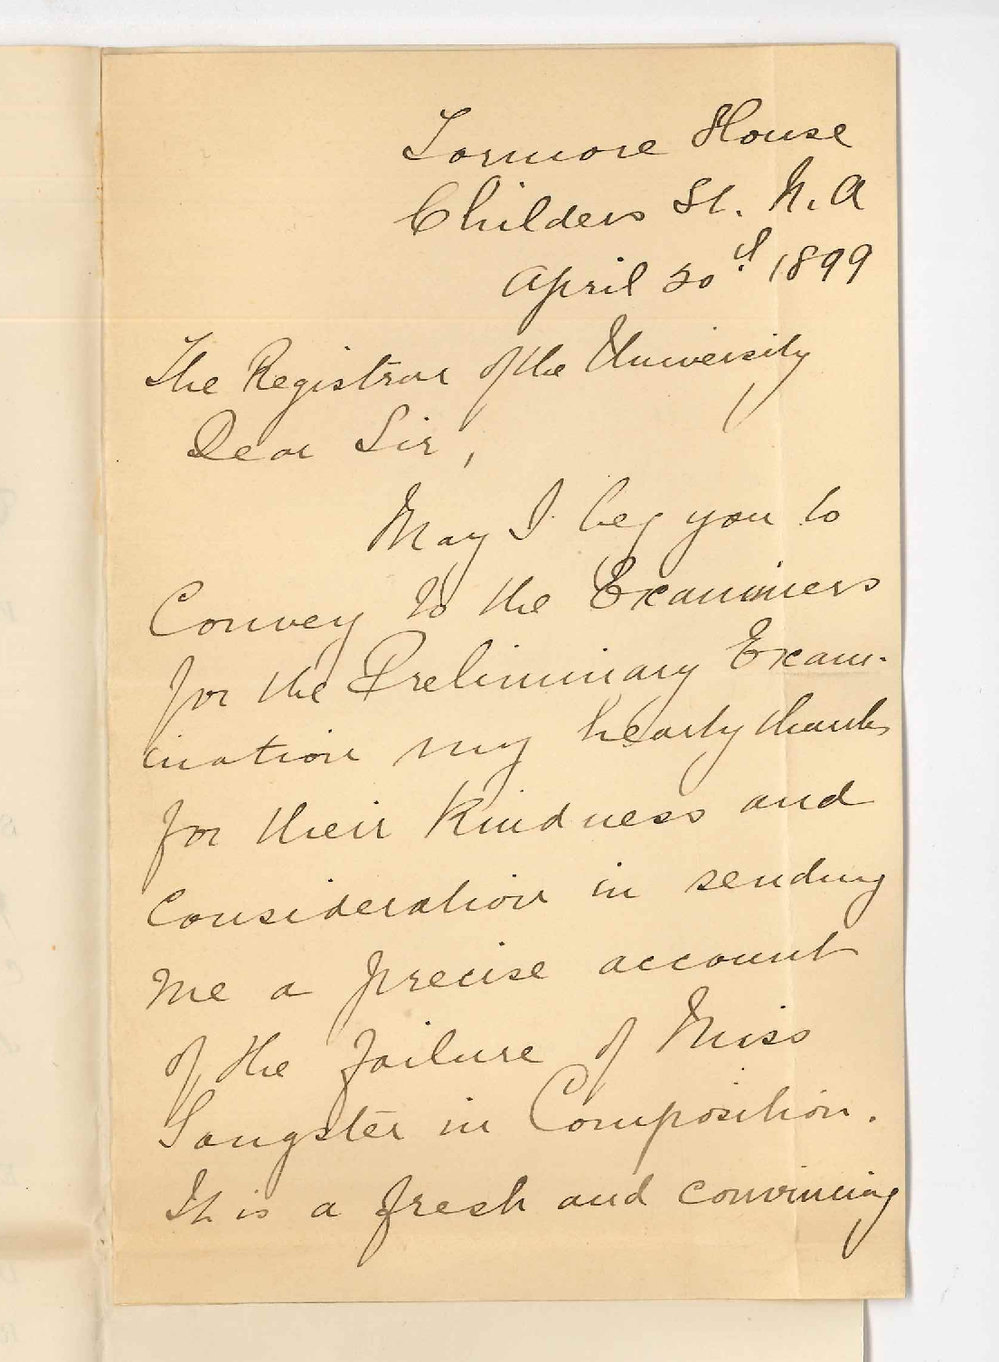 Tormore House
Childers St. N. A
April 20th 1899
The Registrar of the University
Dear Sir,
May I beg you to
Convey to the Examiners
for the Preliminary Exam-
ination my hearty thanks
for their kindness and
consideration in sending
me a precise account
of the failure of Miss
Sangster in Composition.
It is a fresh and convincing